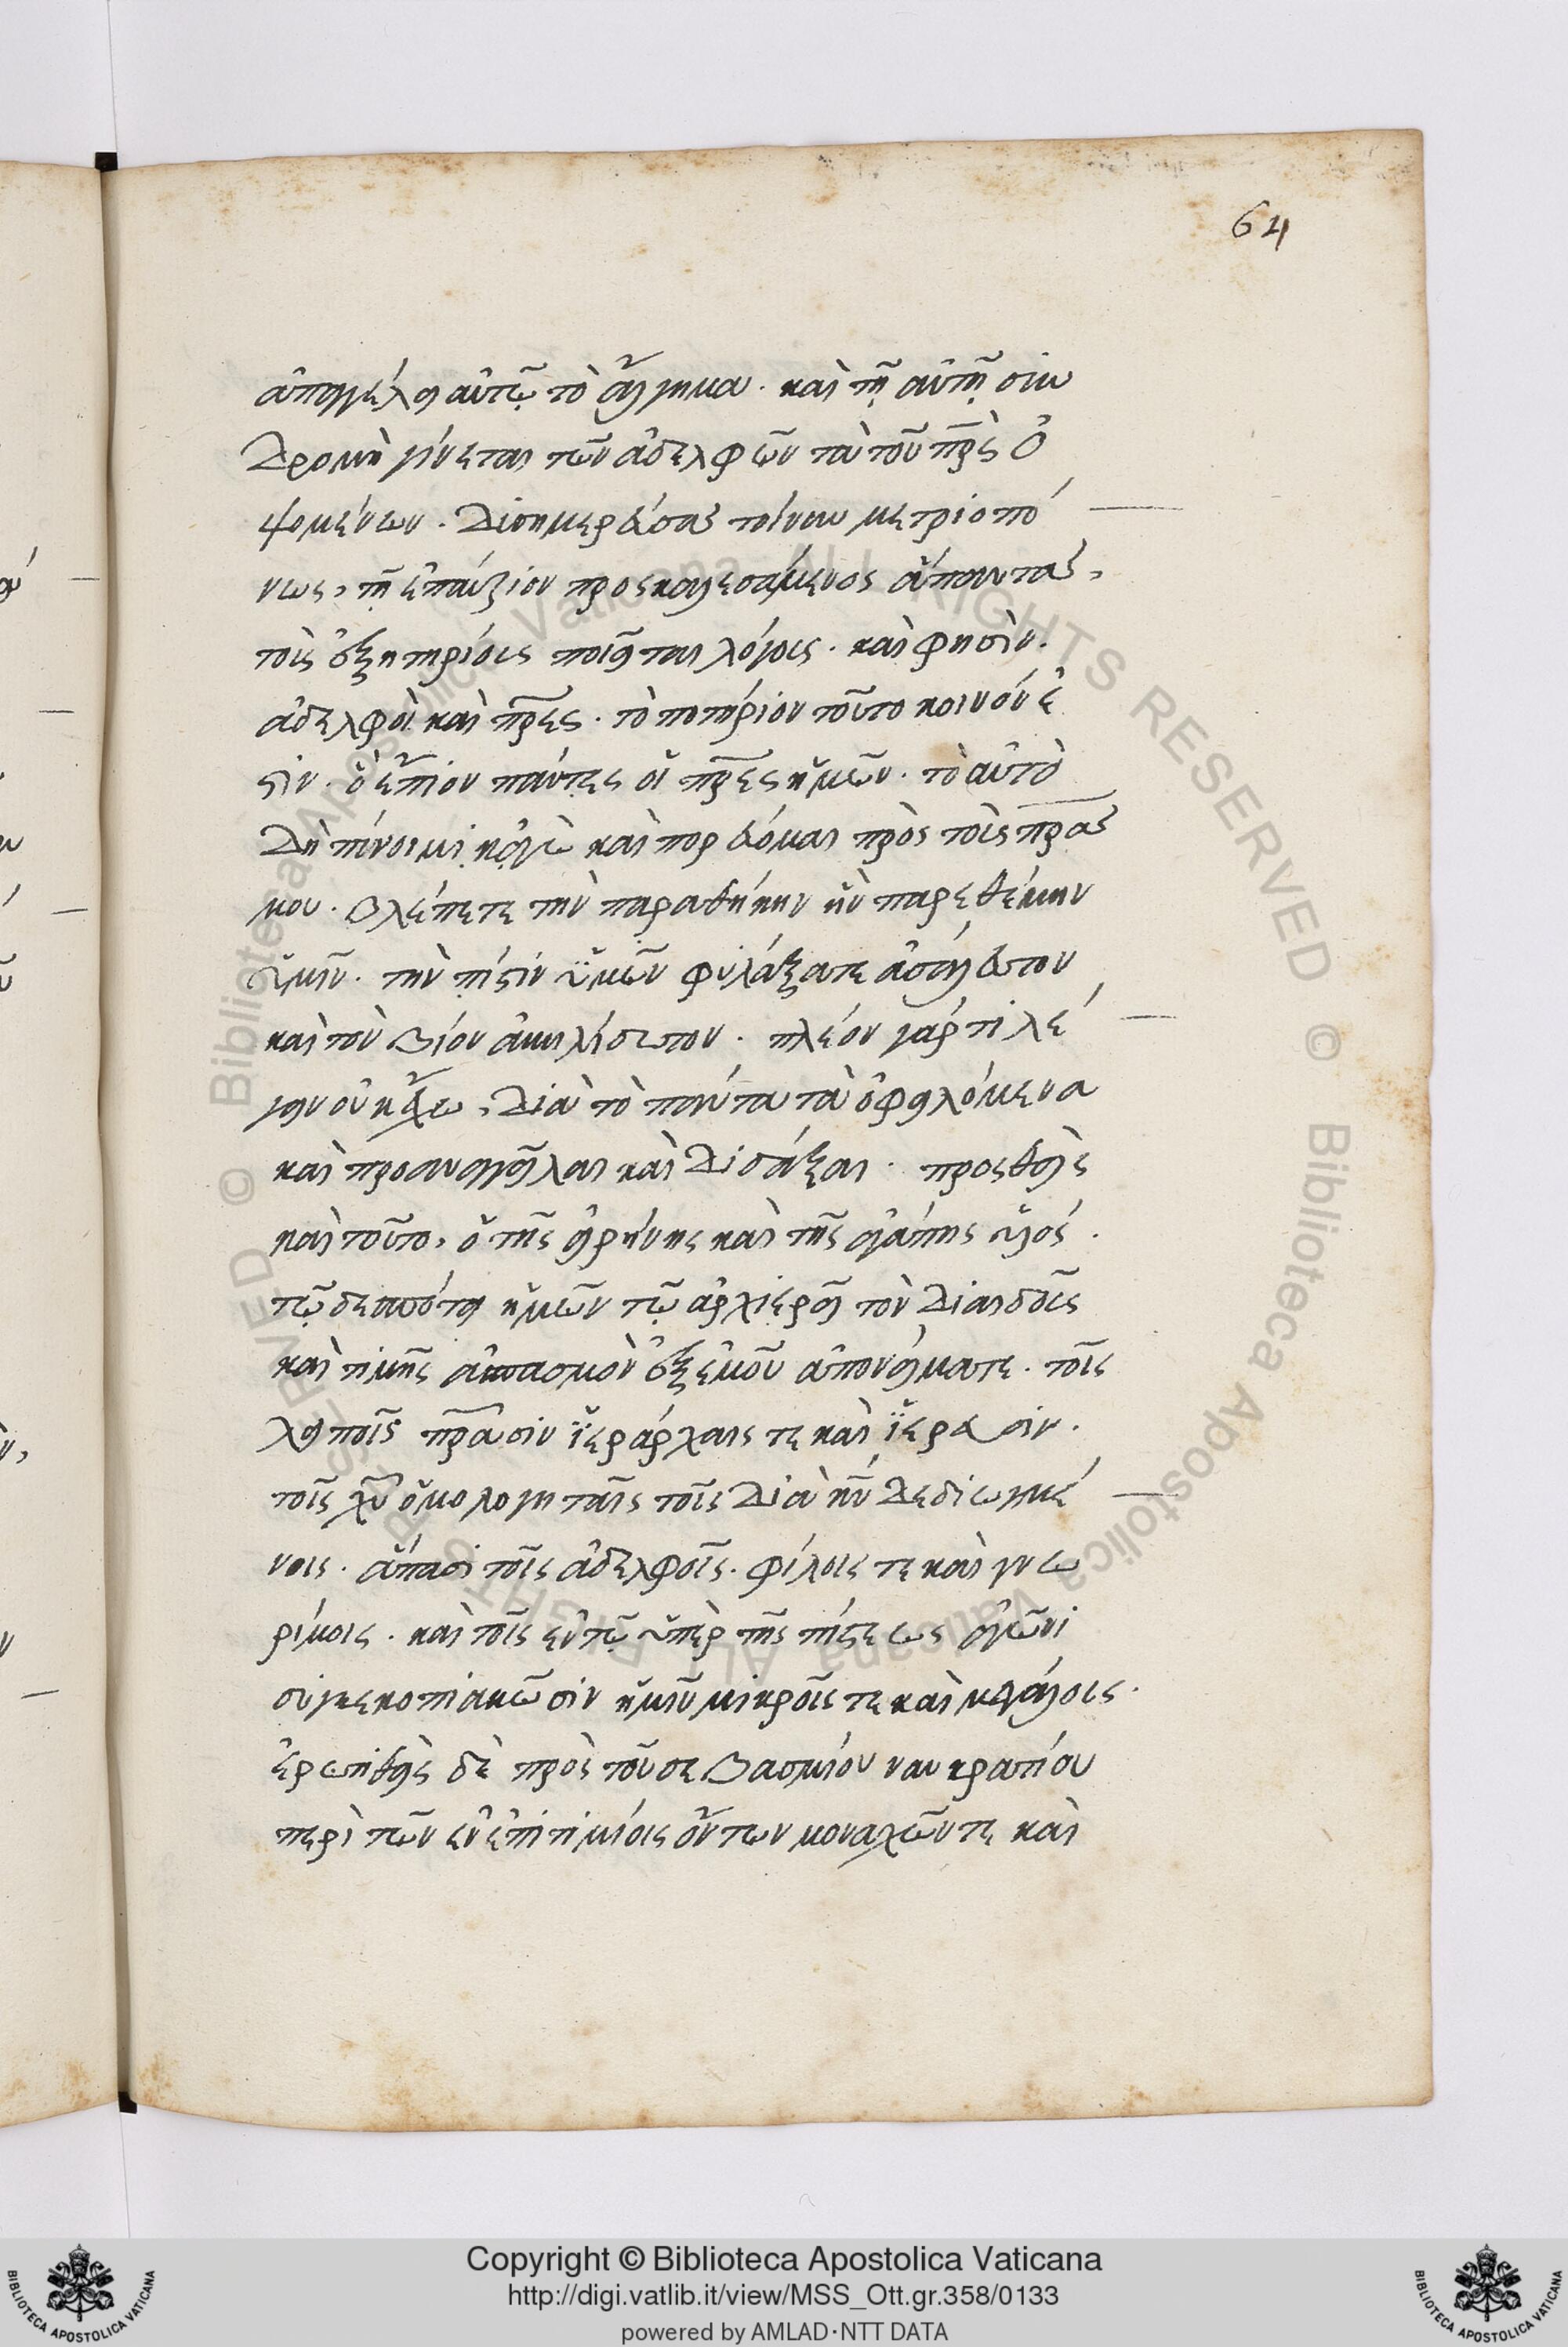 64
ἀπαγγέλει αὐτῶ τὸ ἄλγημα. καὶ τῆ αὐτῆ συν
δρομὴ γίνεται τῶν ἀδελφῶν τὰ τοῦ πρς ὀ
ψομένων. διημερεύσας τοίνυν μετριοπό
νως, τῆ ἐπαύριον προσκαλεσάμενος ἅπαντας,
τοῖς ἐξητηρίοις ποιεῖται λόγοις. καὶ φησὶν.
ἀδελφοὶ καὶ πρες. τὸ ποτήριον τοῦτο κοινόν ἐ
στιν. ὃ ἔπιον πάντες οἱ πρες ἡμῶν. τὸ αὐτὸ
δὴ πίνοιμι κἀγὼ καὶ πορεύομαι πρὸς τοὺς πρας
μου. βλέπετε τὴν παραθήκην ἣν παρεθέμην
ὑμῖν. τὴν πίστιν ὑμῶν φυλάξατε ἀσάλευτον
καὶ τὸν βίον ἀκηλίδωτον. πλέον γάρ τι λέ
γειν οὐκ ἔχω, διὰ τὸ πάντα τὰ ὀφειλόμενα
καὶ προσαναγγεῖλαι καὶ διδάξαι. προσθεὶς
καὶ τοῦτο, ὁ τῆς εἰρήνης καὶ τῆς ἀγάπης υἱός.
τῶ δεσπότη ἡμῶν τῶ ἀρχιερεῖ τὸν δι αἰδοῦς
καὶ τιμῆς ἀσπασμὸν ἐξ ἐμοῦ ἀπονείματε. τοῖς
λοιποῖς πράσιν ἱεράρχαις τε καὶ ἱερεῦσιν.
τοῖς χυ ὁμολογηταῖς τοῖς διὰ κν δεδιωγμέ
νοις. ἅπασι τοῖς ἀδελφοῖς. φίλοις τε καὶ γνω
ρίμοις. καὶ τοῖς ἐν τῶ ὑπὲρ τῆς πίστεως ἀγῶνι
συγκεκοπιακῶσιν ἡμῖν μικροῖς τε καὶ μεγάλοις.
ἐρωτηθεὶς δὲ πρὸς τοῦ σεβασμίου ναυκρατίου
περὶ τῶν ἐν ἐπιτιμίοις ὄντων μοναχῶν τε καὶ
Copyright © Biblioteca Apostolica Vaticana
http://digi.vatlib.it/view/MSS_Ott.gr.358/0133
powered by AMLAD·NTT DATA